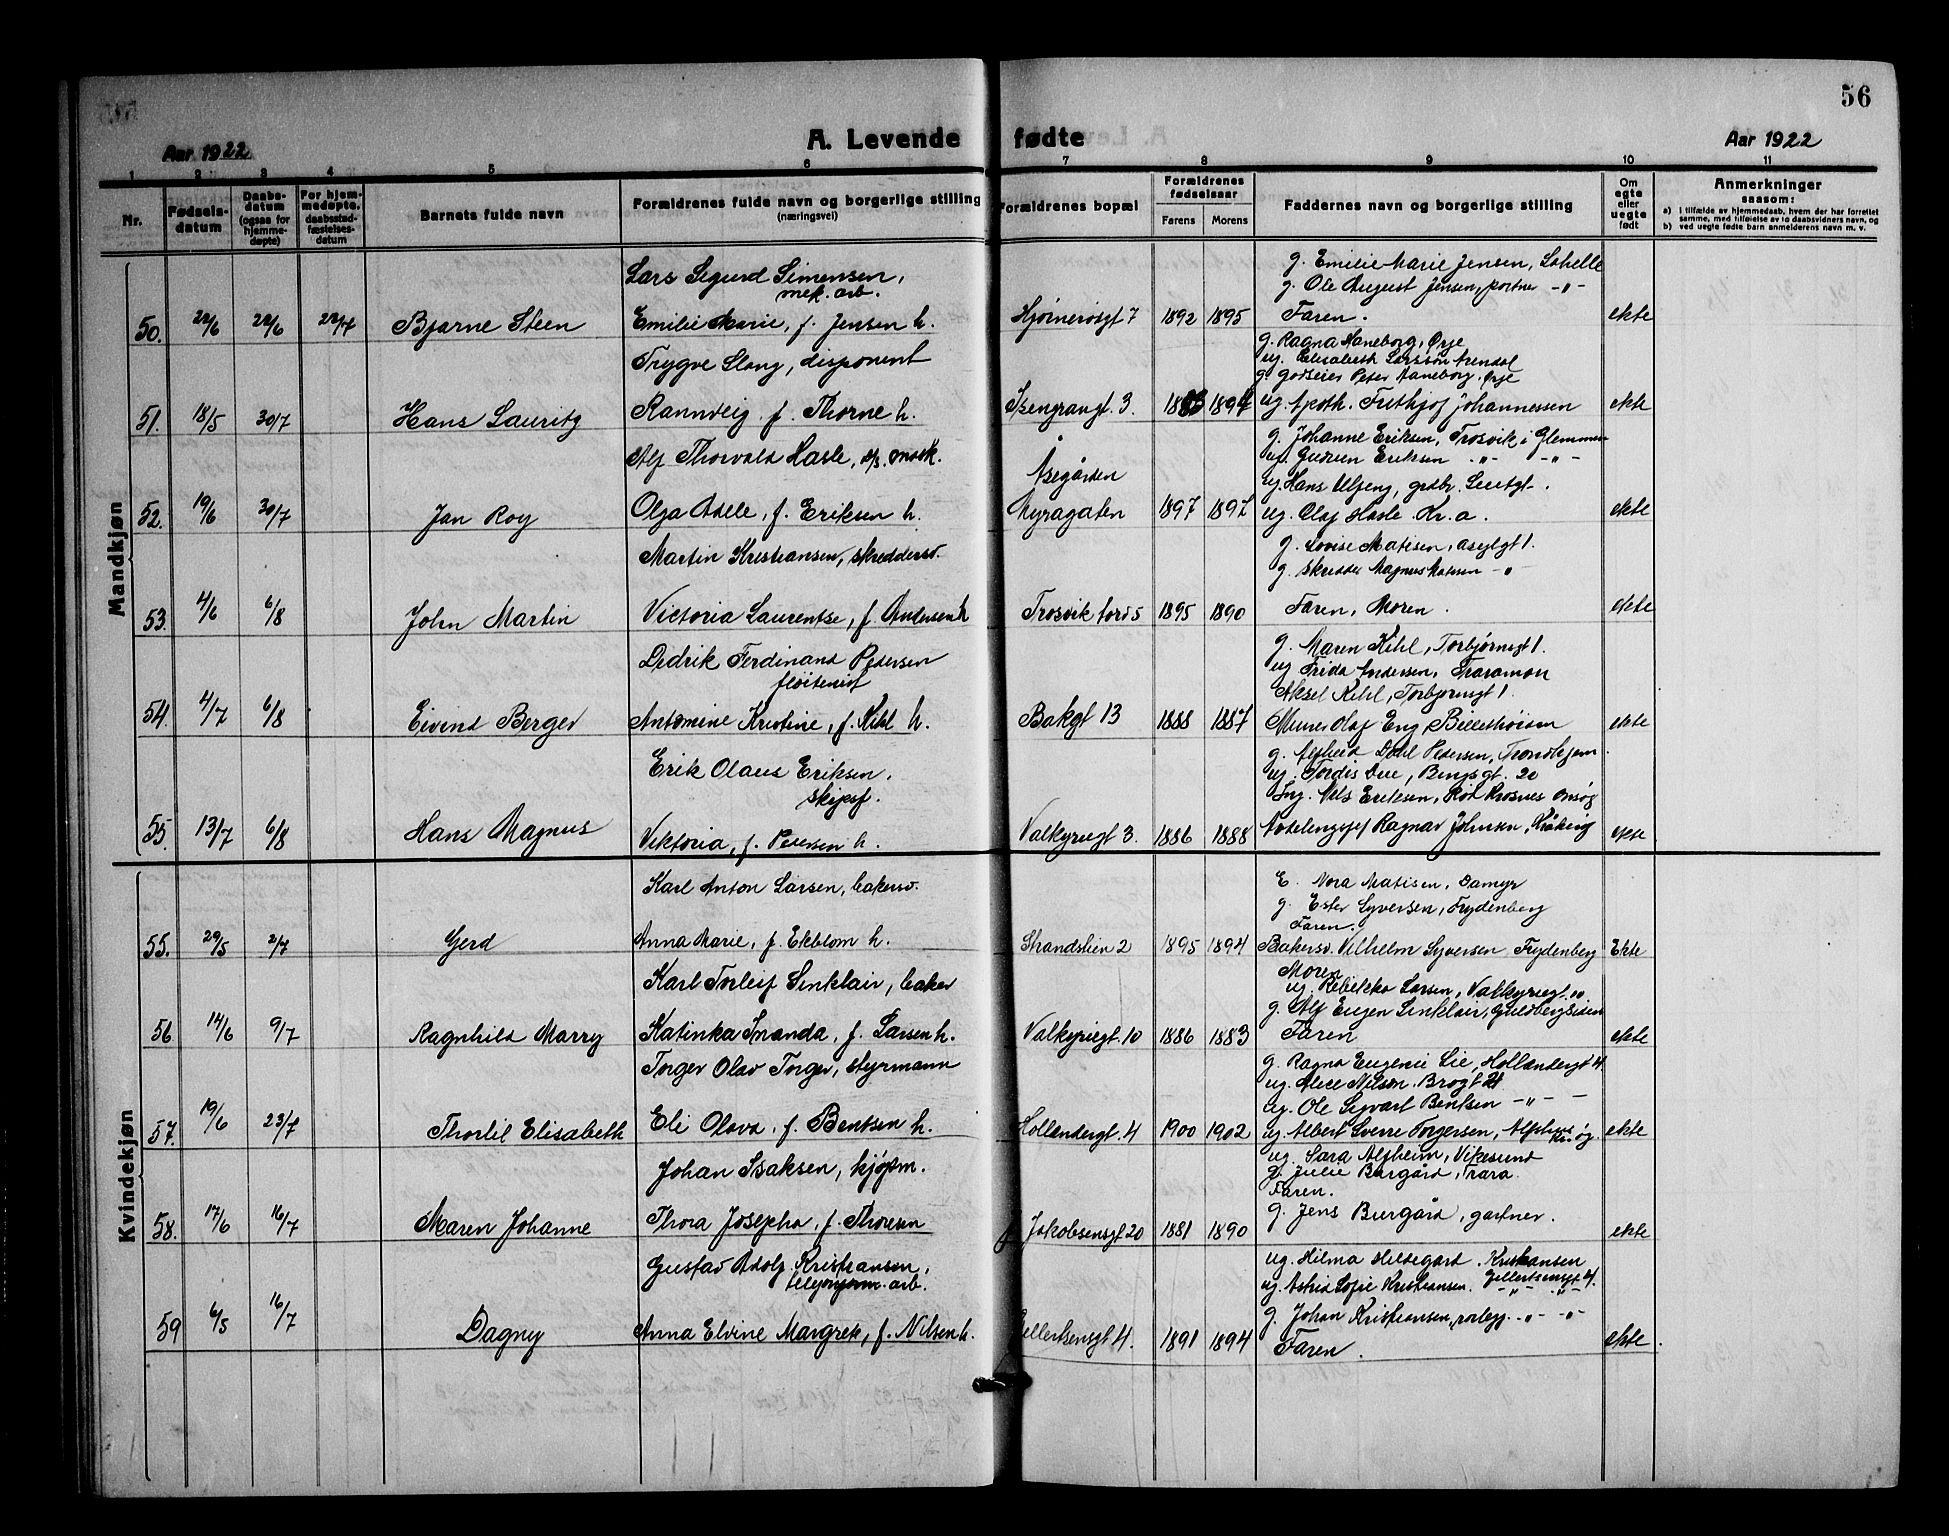 56
A. Levende fødte
Aar 1922
Aar 1922
1 2 3 4 5 6 7 8 9 10 11
Nr.
Fødselsdatum
Daabsdatum (ogsaa for hjemmedøpte)
For hjemmedøpte, daabsstadfæstelsesdatum
Barnets fulde navn
Forældrenes fulde navn og borgerlige stilling
(næringsvei)
Forældrenes bopæl
Forældrenes fødselsaar
Farens Morens
Faddernes navn og borgerlige stilling
Om egte eller uegte født
Anmerkninger
saasom:
a) i tilfælde av hjemmedaab, hvem der har forrettet samme, med tilføielse av to daabsvidners navn, og
b) ved uegte fødte barn anmelderens navn m. v.
Mandkjøn
Lars Sigurd Simensen, mek. arb.
g. Emilie Marie Jensen, Lahelle
g. Ole August Jensen, portner -"-
50. 22/6 22/6 22/7 Bjarne Steen Emilie Marie, f. Jensen h. Hjørnerósgt 7 1892 1895 Faren. ekte
Trygve Slang, disponent
g. Ragna Haneborg, Ørje
ug. Elisabeth Larsson Arendal
g. Godseier Peter Haneborg, Ørje
51. 18/5 30/7 Hans Lauritz Rannveig f. Thorne h. Isengrangt. 3. 1883 1894 ug. Apoth. Frithjof Johannessen ekte
Alf Thorvald Hasle, d/s. mask.
g. Johanne Eriksen, Trosvik i Glemmen
ug. Gudrun Eriksen -"- -"-
Åsegården
ug. Hans Ulfeng, grdbr.
52. 19/6 30/7 Jan Roy Olga Adele, f. Eriksen h. Myragaten 1897 1897 ug. Olaf Hasle Kr.a. ekte
Martin Kristiansen, skreddersv.
g. Lovise Matisen, asylgt 1.
g. skredder Magnus Matisen -"-
53. 4/6 6/8 John Martin Victoria Laurentse, f. Andersen h Trosvik 1895 1890 Faren, Moren. ekte
Didrik Ferdinand Pedersen
g. Maren Kihl, Torbjørnsgt 1.
ug Frida Andersen, Traramon
Aksel Kihl, Torbjørnsgt 1.
54. 4/7 6/8 Eivind Berger Antomine Kristine, f. Kihl h. Bakgt 13 1888 1887 Murer Olaf Eng ekte
Erik Olaus Eriksen, skipsf.
g. Alfheid Dahl Pedersen, Trondhjem.
ug. Tordis Due, Bingsgt. 20
Ing. Nils Eriksen, Rød Krosnes Onsøy
55. 13/7 6/8 Hans Magnus Viktoria, f. Petersen h. Valkyriegt 3. 1886 1888 Avdelingssjef Ragnar Johnsen, ekte
Kvindekjøn
Karl Anton Larsen, bakersv.
E. Nora Matisen, Damyr
g. Ester Syversen, Frydenberg
Faren.
55. 29/5 2/7 Gerd Anna Marie, f. Ekblom h. Strandstien 2 1895 1894 Bakersv. Vilhelm Syversen Frydenberg Ekte
Karl Torleif Sinklair, baker
Moren
ug. Rebekka Larsen, Valkyriegt. 10
g. Alf Eugen Sinklair, Guldbergsiden
56 14/6 9/7 Ragnhild Marry Katinka Inanda, f. Larsen h. Valkyriegt. 10 1886 1883 Faren ekte
Torger Olav Torger, styrmann
g. Ragna Eugenie Lie, Hollendergt 4
ug. Alice Nilsen. Brogt 21
ug. Ole Syvart Bentsen -"- -
57. 19/6 23/7 Thorlil Elisabeth Eli Olava, f. Bentsen h. Hollendergt. 4 1900 1902 ug. Albert Sverre Torgersen, ekte
Johan Isaksen, kjøpm.
ug. Sara Alfheim, Vikesund
g. Julie Burgård, Trara.
Faren.
58. 17/6 16/7 Maren Johanne Thora Josepha, f. Thoresen Jakobsensgt 20 1881 1890 g. Jens Burgård, gartner. ekte
Gustav Adolf Kristiansen, arb.
ug. Hilma Hildegard Kristiansen Gellertsensgt 4.
ug. Astrid Sofie Kristiansen. -"- -"-
g. Johan Kristiansen, rørlegg. -"- -"-
59 6/5 16/7 Dagny Anna Elvine Margrete, f. Nilsen h. Gellertsensgt 4. 1891 1894 Faren. ekte